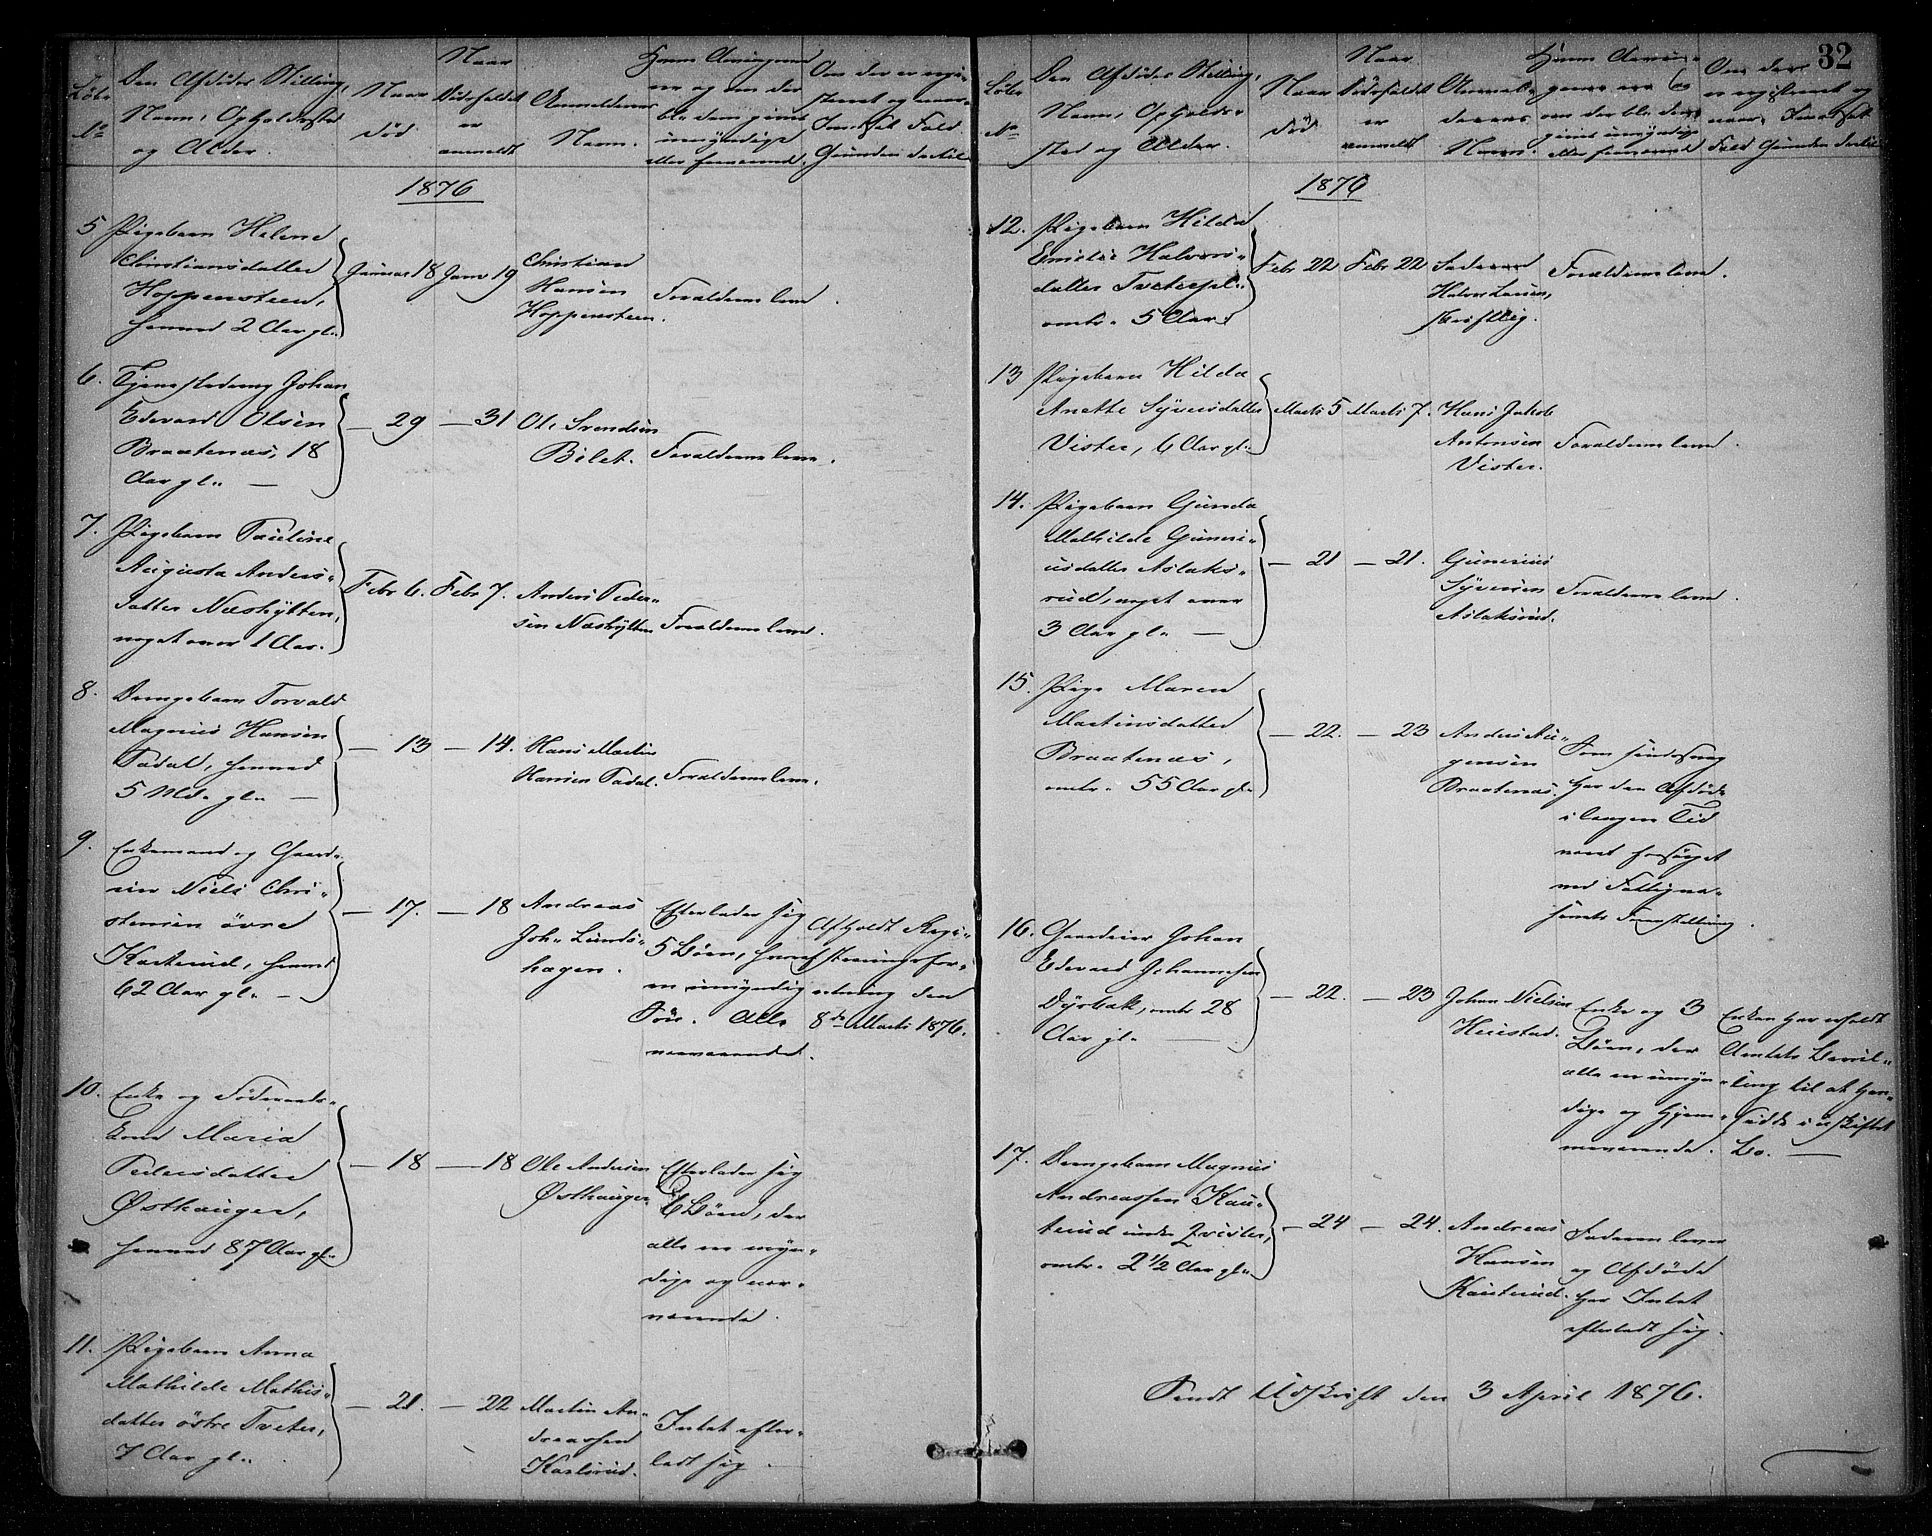 32
Løbe
No
Den Afdødes Stilling,
Navn, Opholdssted
og Alder.
Naar
død.
Naar
Dødsfaldet
er
anmeldt
Anmelderens
Navn.
Hvem Arvingerne
ere og om der
bl. dem gives
umyndige
eller fraværende.
Om der er regi-
streret og naar.
I modsat Fald
Grunden dertil
1876
5 Pigebarn Helene
Christiansdatter
Hoppensteen,
henved 2 Aar gl.
Januar 18 Janr 19
Christian
Hansen
Hoppensteen.
Forældrene leve.
6. Tjenestedreng Johan
Edevard Olsen
Braatenæs, 18
Aar gl. —
— 29 — 31
Ole Svendsen
Bilet.
Forældrene leve.
7. Pigebarn Pauline
Augusta Anders-
datter Næshytten,
noget over 1 Aar.
Febr 6. Febr 7.
Anders Peder-
sen Næshytten
Forældrene leve.
8. Drengebarn Torvald
Magnus Hansen
Tadal, henved
5 Md. gl. —
— 13 — 14.
Hans Martin
Hansen Tadal.
Forældrene leve.
9. Enkemand og Gaard-
eier Niels Chri-
stensen øvre
Kasterud, henved
62 Aar gl. —
— 17. — 18
Andreas
Joh. Lunds-
hagen.
Efterlader sig
5 Børn, hvoraf
en umyndig
Søn. Alle
nærværende.
Afholdt Regi-
streringsfor-
retning den
8de Marts 1876.
10. Enke og Føderaads-
kone Maria
Pedersdatter
Østhaugen,
henved 87 Aar gl.
— 18 — 18
Ole Andersen
Østhaugen
Efterlader sig
6 Børn, der
alle ere myn-
dige og nær-
værende.
11. Pigebarn Anna
Mathilde Mathis-
datter østre Tveter,
7 Aar gl.
— 21. — 22
Martin An-
dreassen
Karlsrud.
Intet efter-
ladt sig.
Løbe
No
Den Afdødes Stilling,
Navn, Opholds-
sted og Alder.
Naar
død.
Naar
Dødsfaldet
er
anmeldt
Anmel-
derens
Navn.
Hvem Arvin-
gerne ere og
om der bl. dem
gives umyndige
eller fraværende
Om der
er registreret og
naar. I modsat
Fald Grunden dertil
1876
12. Pigebarn Hilda
Halvors-
datter
omtr. 5 Aar.
Febr 22 Febr 22
Faderen
Halvor Larsen,
skriftlig.
Forældrene leve.
13 Pigebarn Hilda
Anette Syversdatter
Vister, 6 Aar gl.
Marts 5 Marts 7.
Hans Jakob
Antonsen
Vister.
Forældrene leve.
14. Pigebarn Gunda
Mathilde Guneri-
usdatter Aslaks-
rud, noget over
3 Aar gl. —
— 21 — 21.
Gunerius
Syversen
Aslaksrud.
Forældrene leve.
15. Pige Maren
Martinsdatter
Braatenæs,
omtr. 55 Aar gl.
— 22. — 23
Anders Au-
gensen
Braatenæs.
Som sindssvag
har den Afdøde
i langen Tid
været forsørget
ved Fattigvæ-
senets Foranstaltning.
16. Gaardeier Johan
Edevard Johannesen
Dysbak, omtr 28
Aar gl. —
— 22. — 23
Johan Nielsen
Huustad.
Enke og 3
Børn, der
alle ere umyn-
dige og hjem-
meværende.
Enken har erholdt
Amtets Bevil-
ling til at hen-
sidde i uskiftet
Bo. —
17. Drengebarn Magnus
Andreassen Kau-
terud under Qvister,
omtr. 2 1/2 Aar gl.
— 24 — 24.
Andreas
Hansen
Kauterud.
Faderen lever
og Afdøde
har Intet
efterladt sig.
Sendt Udskrift den 3 April 1876.